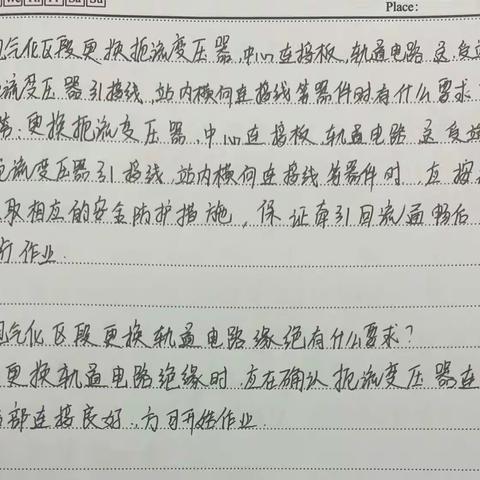 We Th Fr Sa Su
Place:
气化区段更换扼流变压器、中心连接板、轨道电路送、受
流变压器引接线、站内横向连接线等器件时有什么要求
答:更换扼流变压器、中心连接板、轨道电路送、受
流变压器引接线、站内横向连接线等器件时,应按
取相应的安全防护措施,保证牵引回流通畅后
行作业.
气化区段更换轨道电路缘绝有什么要求?
更换轨道电路绝缘时,应在确认扼流变压器连
部连接良好,方可开始作业.